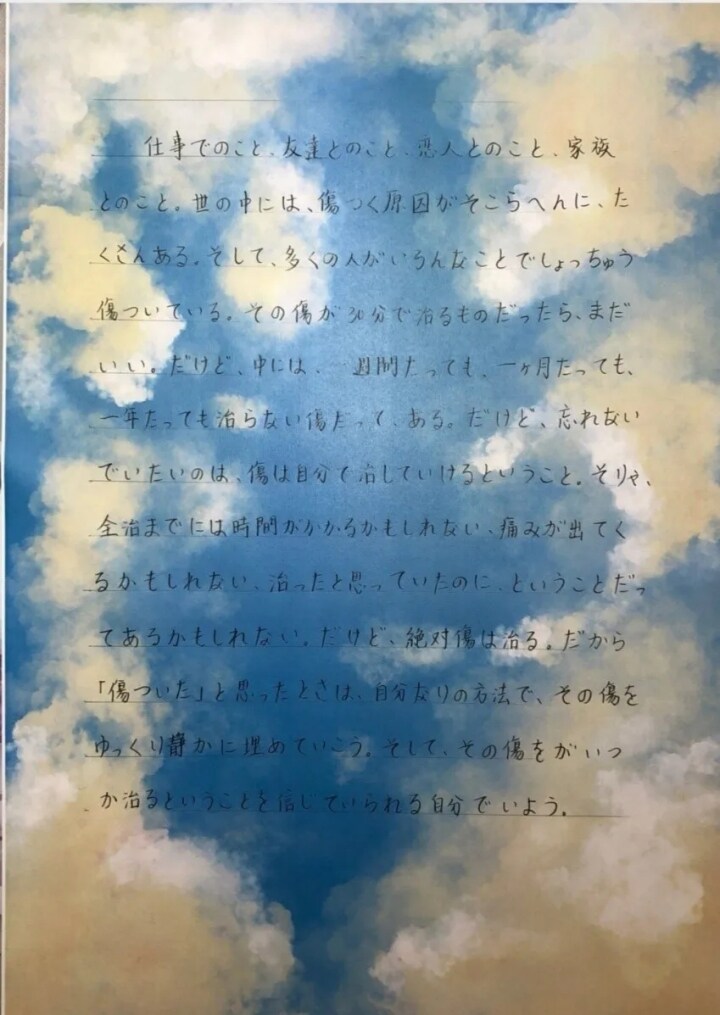 仕事でのこと、友達とのこと、恋人とのこと、家族
とのこと。世の中には、傷つく原因がそこらへんに、た
くさんある。そして、多くの人がいろんなことでしょっちゅう
傷ついている。その傷が30分で治るものだったら、まだ
いい。だけど、中には、一週間たっても、一ヶ月たっても、
一年たっても治らない傷だって、ある。だけど、忘れない
でいたいのは、傷は自分で治していけるということ。そりゃ、
全治までには時間がかかるかもしれない、痛みが出てく
るかもしれない、治ったと思っていたのに、ということだっ
てあるかもしれない。だけど、絶対傷は治る。だから
「傷ついた」と思ったときは、自分なりの方法で、その傷を
ゆっくり静かに埋めていこう。そして、その傷をがいつ
か治るということを信じていられる自分でいよう。